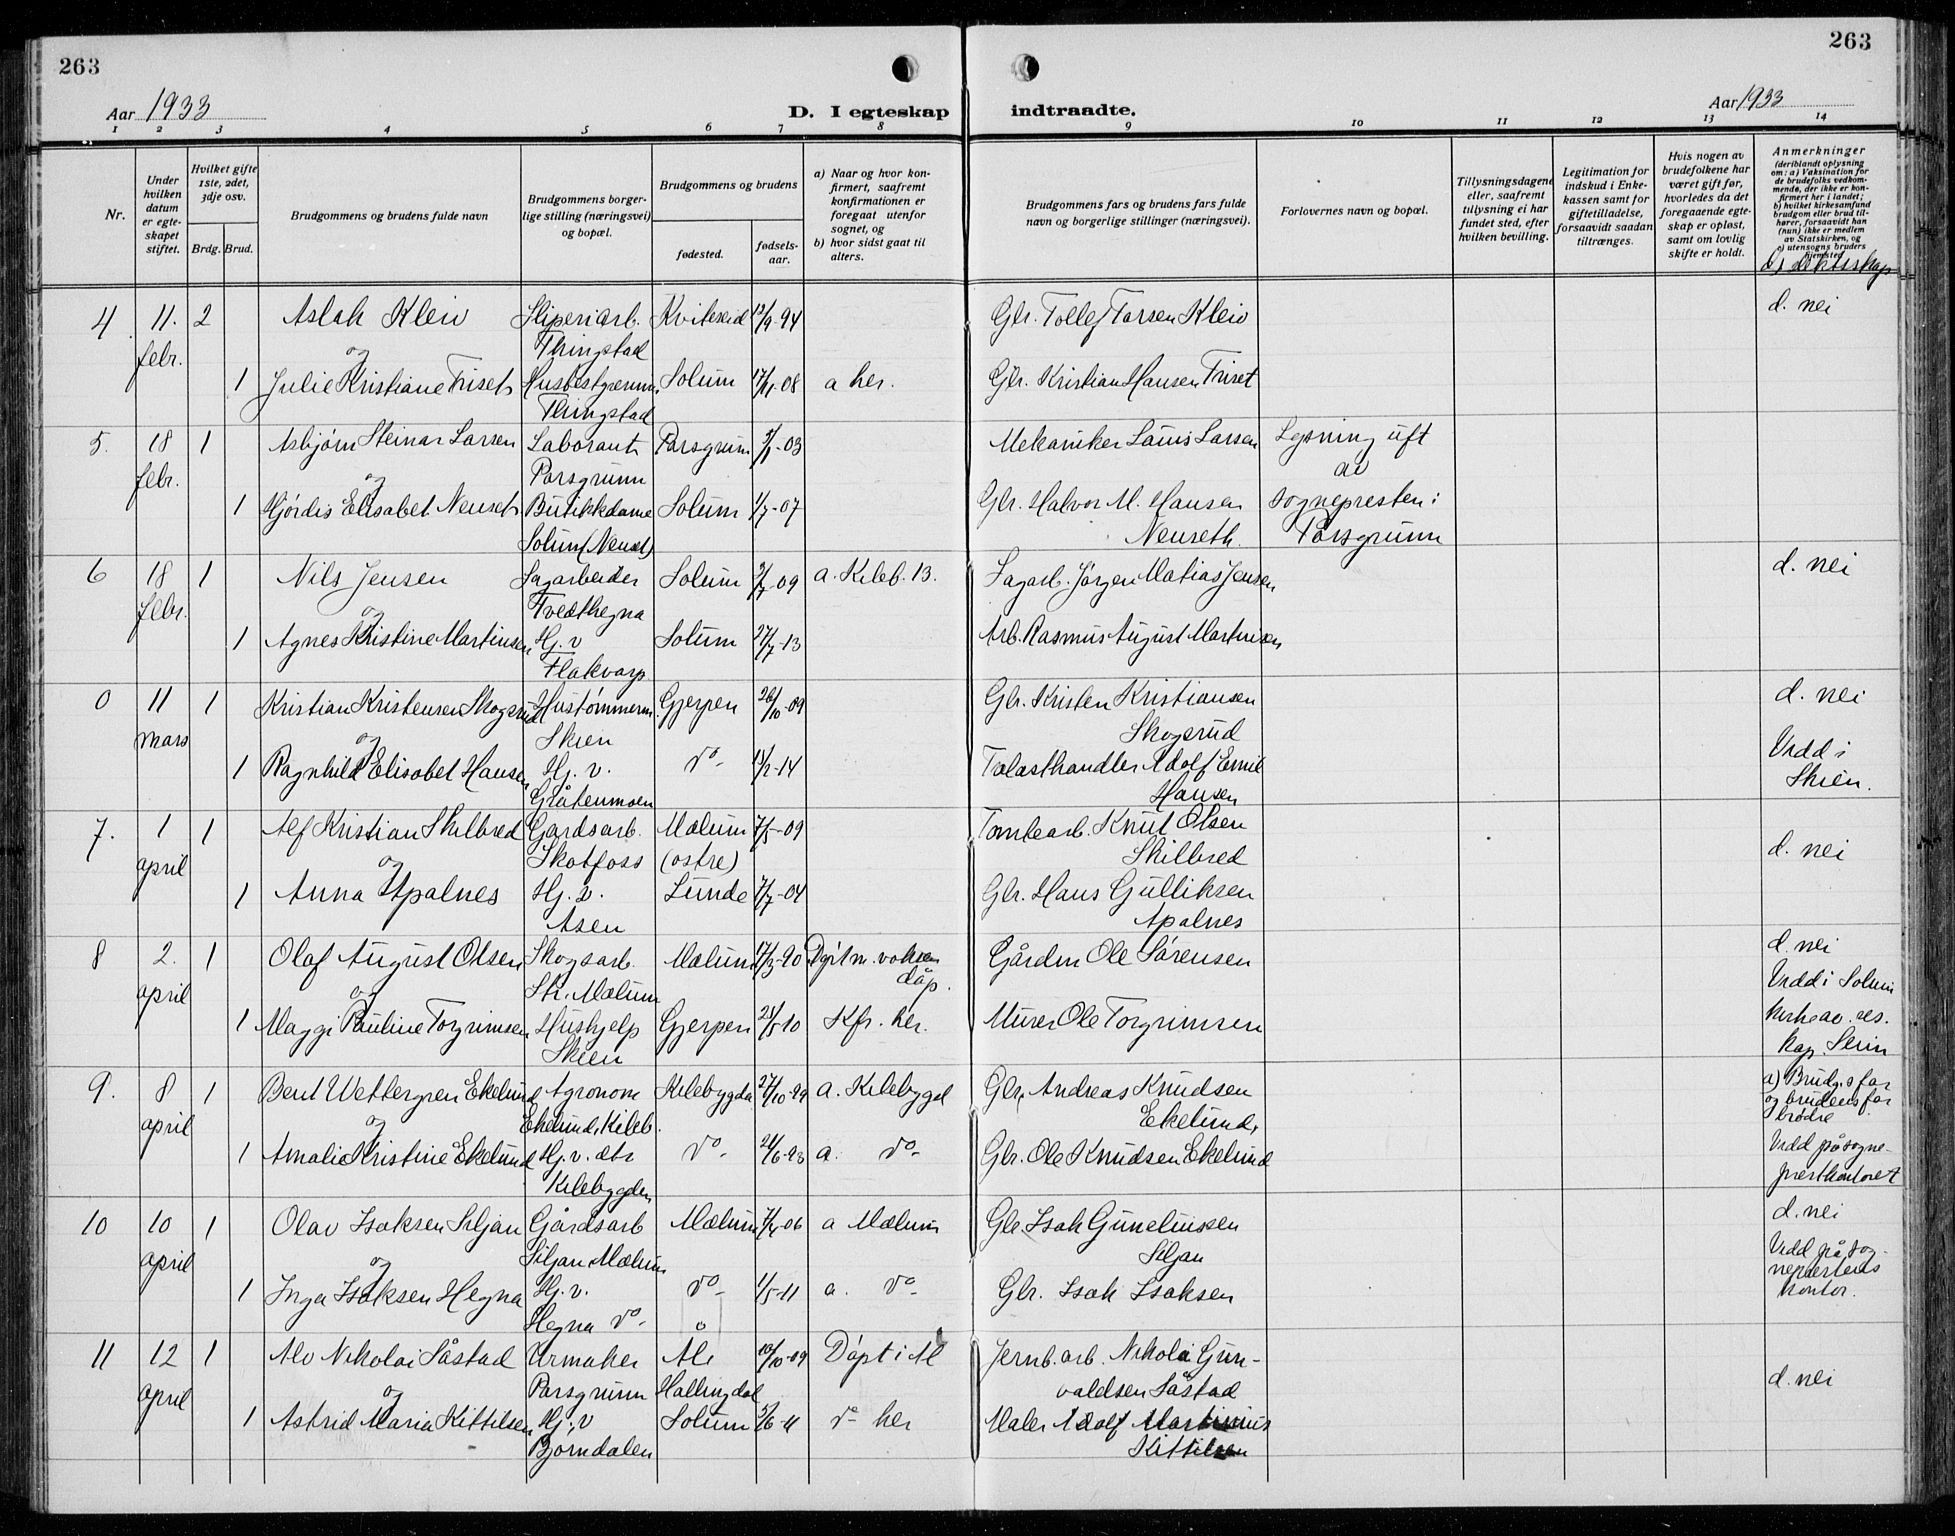 263
263
Aar 1933
D. I egteskap indtraadte.
Aar 1933
1 2 3 4 5 6 7 8 9 10 11 12 13 14
Nr.
Under hvilken datum er egteskapet stiftet.
Hvilket gifte 1ste, 2det, 3dje osv.
Brdg. Brud.
Brudgommens og brudens fulde navn
Brudgommens borgerlige stilling (næringsvei) og bopæl.
Brudgommens og brudens
fødested.
fødselsaar.
a) Naar og hvor konfirmert, saafremt konfirmationen er foregaat utenfor sognet, og
b) hvor sidst gaat til alters.
Brudgommens fars og brudens fars fulde navn og borgerlige stillinger (næringsvei).
Forlovernes navn og bopæl.
Tillysningsdagene eller, saafremt tillysning ei har fundet sted, efter hvilken bevilling.
Legitimation for indskud i Enkekassen samt for giftetilladelse, forsaavidt saadan tiltrænges.
Hvis nogen av brudefolkene har været gift før, hvorledes da det foregaaende egteskap er opløst, samt om lovlig skifte er holdt.
Anmerkninger
(deriblandt oplysning om: a) Vaksination for de brudefolks vedkommende, der ikke er konfirmert her i landet, b) hvilket kirkesamfund brudgom eller brud tilhører, forsaavidt han (hun) ikke er medlem av Statskirken, og c) utensogns bruders hjemsted
d) slektskap
4. 11. 2 Aslak Kleiv Sliperiarb. Kviteseid 12/9-94 Gbr. Tollef Torsen Kleiv d. nei
febr. og Thingstad
1 Julie Kristiane Triset Husbestyrerinne Solum 17/11-08 a her. Gbr. Kristian Hansen Triset
Thingstad
5. 18 1 Asbjørn Steinar Larsen Laborant Porsgrunn -03 Mekaniker Louis Larsen Lysning utst
febr. og Porsgrunn av
1 Hjørdis Elisabet Neuset Butikkdame Solum 1/7-07 Gbr. Halvor M. Hansen sognepresten i
Solum (Neuset) Neuseth. Porsgrunn
6 18 1 Nils Jensen Sagarbeider Solum -09 a. Kileb. 13. Sagarb. Jørgen Matias Jensen d. nei
febr. og Tvedthegna
1 Agnes Kristine Martinsen Hj. v Solum 27/7-13 Arb. Rasmus August Martinsen
Flakvarp
0 11 1 Kristian Kristensen Skogsrud Hustømmerm. Gjerpen 26/10-09 Gbr. Kristen Kristiansen d. nei
mars og Skien Skogsrud
1 Ragnhild Elisabet Hansen Hj. v. do- 14/2-14 Trelasthandler Adolf Emil Viedd i
Gråtenmoen Hansen Skien.
7. 1 1 Alf Kristian Skilbred Gardsarb. Mælum 7/5-09 Tomtearb. Knut Olsen
april og Skotfoss (østre) Skilbred d. nei
1 Anna Apalnes Hj. v. Lunde 7/7-04 Gbr. Hans Gulliksen
Åsen Apalnes
8 2. 1 Olaf August Olsen Skogsarb. Mælum 17/3-90 voksen dåp. Gårdm Ole Sørensen d. nei
april og St. Mælum Viedd i Solum
1 Maggi Pauline Torgrimsen Hushjelp Gjerpen 21/5 10 Kfr. her. Murer Ole Torgrimsen kirke av res.
Skien kap.
9. 8 1 Bent Wettergren Ekelund Agronom Kilebygda 27/10-99 a. Kilebygd Gbr. Andreas Knudsen a) Brudg.s far
april og Ekelund, Kileb. Ekelund, og brudens far
brødre
1 Amalie Kristine Ekelund Hj. v. dtr do- 21/6-93 a. do- Gbr. Ole Knudsen Ekelund Viedd på sogne-
Kilebygden prestkontoret
10 10 1 Olav Isaksen Siljan Gårdsarb Mælum -06 a Mælum Gbr. Isak Gunelinssen d. nei
april og Siljan Mælum Siljan Viedd på sog-
1 Inga Isaksen Hegna Hj. v. do- 1/5-11 a. do- Gbr. Isak Isaksen neprestens
Hegna do- kontor.
11 12 1 Alv Nikolai Såstad Urmaker Ål 10/10-09 Døpt i Ål Jernb. arb. Nikolai Gun-
april og Porsgrunn Hallingdal valdsen Såstad d. nei
1 Astrid Maria Kittilsen Hj. v Solum 5/6-11 do her Maler Adolf Martinius
Bjørndalen Kittilsen